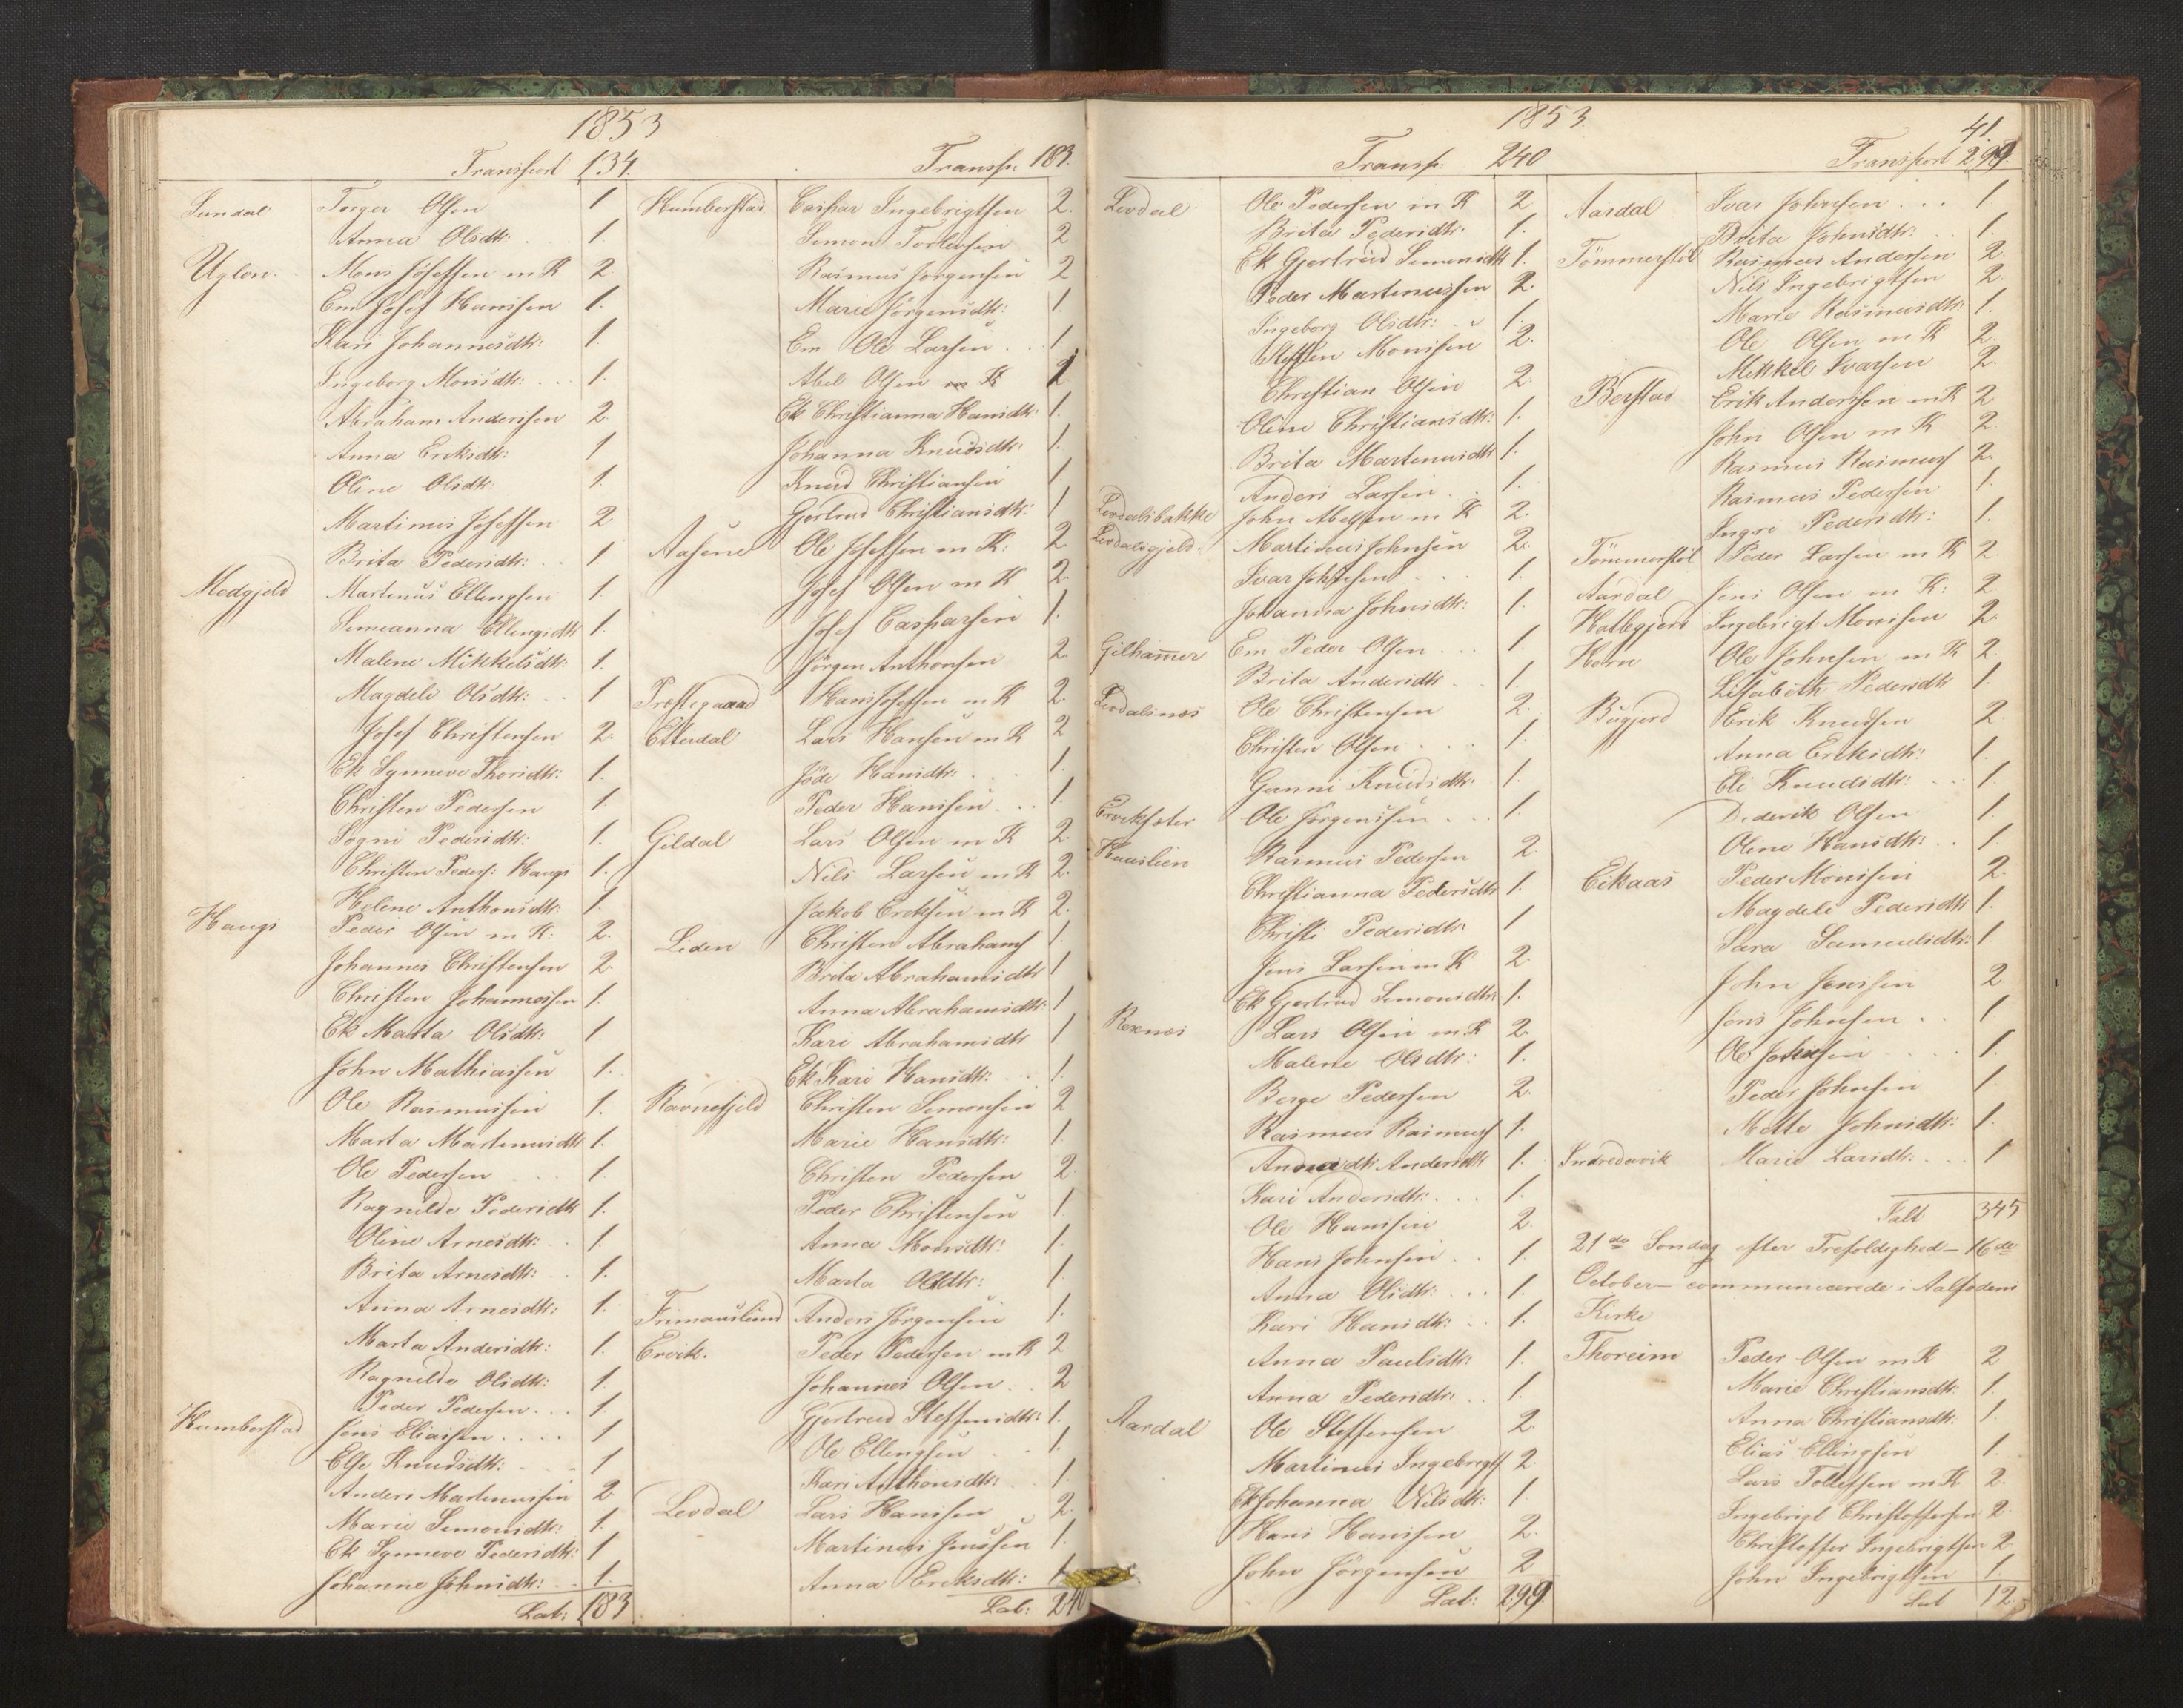 1853
Transport 134.
Sundal Torger Olsen 1
Anna Olsdtr: 1.
Uglen. Mons Josefsen m K 2
Em Josef Hansen 1.
Kari Johannesdtr: 1.
Ingeborg Monsdtr: 1.
Abraham Anderssen 2
Anna Eriksdtr: 1
Oline Olsdtr: 1.
Martinus Josefsen 2
Brita Pedersdtr: 1
Medgjeld Martinus Ellingsen 1.
Simeanna Ellingsdtr 1.
Malene Mikkelsdtr: 1.
Magdeli Olsdtr: 1
Josef Christensen 2.
Ek Synneve Thorsdtr: 1.
Christen Pedersen 1.
Sogni Pedersdtr: 1.
Christen Peders: Haugs 1.
Helene Anthonsdtr 1.
Haugs Peder Olsen m K: 2.
Johannes Christensen 2.
Christen Johannessen 1.
Ek Marta Olsdtr: 1
John Mathiassen 1.
Ole Rasmussen 1.
Marta Martinusdtr 1.
Ole Pedersen 1.
Ragnilde Pedersdtr 1.
Oline Arnesdtr: 1
Brita Arnesdtr: 1.
Anna Arnesdtr: 1.
Marta Andersdtr: 1.
Ragnilde Olsdtr: 1.
Peder Pedersen 1.
Humberstad Jens Eliassen 1
Else Knudsdtr: 1
Anders Martinussen 2
Marie Simonsdtr: 1.
Ek Synneve Pedersdtr: 1
Johanne Johnsdtr: 1.
Lat: 183
Transp: 183.
Humberstad Caspar Ingebrigtsen 2.
Simon Torlevsen 2
Rasmus Jorgensen 2
Marie Jörgensdtr: 1.
Em Ole Larsen 1
Abel Olsen m K 2
Ek Christianna Hansdtr: 1.
Johanna Knudsdtr: 1.
Knud Christiansen 1
Gjertrud Christiansdtr: 1
Aasene Ole Josefsen m K: 2.
Josef Olsen m K 2.
Josef Casparsen 1.
Jörgen Anthonsen 2
Prestegaard Hans Josefsen m K 2.
Etterdal Lars Hansen m K 2
Jöde Hansdtr: 1.
Peder Hanssen 1.
Gildal Lars Olsen m K 2
Nils Larsen m K 2.
Jakob Ercksen m K 2.
Liden Christen Abrahams 1
Brita Abrahamsdtr 1
Anna Abrahamsdtr: 1
Kari Abrahamsdtr 1
Ek Kari Hansdtr: 1.
Ravnefjeld Christen Simonsen 2
Marie Hansdtr: 1
Christen Pedersen 2.
Peder Christensen 1.
Anna Monsdtr: 1.
Marta Olsdtr: 1
Frimanslund Anders Jörgensen 1.
Ervik. Peder Pedersen m K 2
Johannes Olsen 2
Gjertrud Steffensdtr: 1.
Ole Ellingsen 1.
Kari Anthonsdtr: 1.
Levdal Lars Hanssen 2.
Martinus Jenssen 1.
Anna Ercksdtr: 1.
Lat: 240
1853.
41.
Transp: 240
Levdal Ole Pedersen m K 2
Brita Pedersdtr: 1.
Ek Gjertrud Simonsdtr 1.
Peder Martinussen 2.
Ingeborg Olsdtr: 1.
Steffen Monssen 2.
Christian Olsen 2.
Oline Christiansdtr: 1.
Brita Martinusdtr 1.
Anders Larsen 1.
Levdalsbakke John Abelsen m K 2.
Levdalsgjeld. Martinus Johnsen 2.
Ivar Johnsen 1.
Johanna Johnsdtr: 1.
Gilham̄er Em Peder Olsen 1
Brita Andersdtr 1.
Levdalsnes Ole Christensen 2.
Christen Olsen 1.
Ganni Knudsdtr: 1.
Ervikseter Ole Jörgenssen 1.
Kuuslien Rasmus Pedersen 2.
Christianna Pedersdtr 1.
Christi Pedersdtr 1
Jens Larsen m K 2.
Ek Gjertrud Simonsdtr 1.
Rexnes Lars Olsen m K 2.
Malene Olsdtr: 1.
Berge Pedersen 2.
Rasmus Rasmuss 1.
Anna Andersdtr 1.
Kari Andersdtr: 1.
Ole Hanssen 2.
Hans Johnsen 1.
Anna Olsdtr: 1.
Kari Hansdtr: 1.
Anna Paulsdtr 1.
Anna Pedersdtr: 1.
Aardal Ole Steffensen 2.
Martinus Ingebrigts 2
Ek Johanna Nilsdtr: 1.
Hans Hanssen 2.
John Jörgensen 2
Lat: 299.
Transport 299.
Aardal Ivar Johnsen 1.
Brita Johnsdtr: 1.
Tömmerstöl Rasmus Andersen 2.
Nils Ingebrigtsen 2.
Marie Rasmusdtr: 1.
Ole Olsen m K 2
Mikkel Ivarsen 2.
Berstad Erik Andersen m K 2
John Olsen m K 2.
Rasmus Rasmuss 2.
Rasmus Pedersen 1.
Ingri Pedersdtr: 1.
Tömmerstöl Peder Larsen m K 2
Aardal Jens Olsen m K: 2
Hatlegjerd Ingebrigt Monssen 2.
Horn Ole Johnsen m K 2
Lisabeth Pedersdtr 1.
Bugjerd Erik Knudsen 2.
Anna Eriksdtr: 1.
Eli Knudsdtr: 1.
Diderik Olsen 1
Oline Hansdtr: 1
Eikaas Peder Monssen 2.
Magdeli Pedersdtr 1.
Sara Samuelsdtr: 1
John Jenssen 2.
Jens Johnsen 1
Ole Johnsen 1.
Peder Johnsen 1
Mette Johnsdtr: 1.
Indrevik Marie Larsdtr 1
Ialt 345
21de Söndag efter Trefoldighed – 16de
October – communicerede i Aalfodens
Kirke
Thoreim Peder Olsen m K 2
Marie Christiansdtr 1.
Anna Christiansdtr: 1.
Elias Ellingsen 1.
Lars Tollefsen m K 2.
Ingebrigt Christoffersen 2
Christoffer Ingebrigtsen 2
John Ingebrigtsen 1
Lat 12.